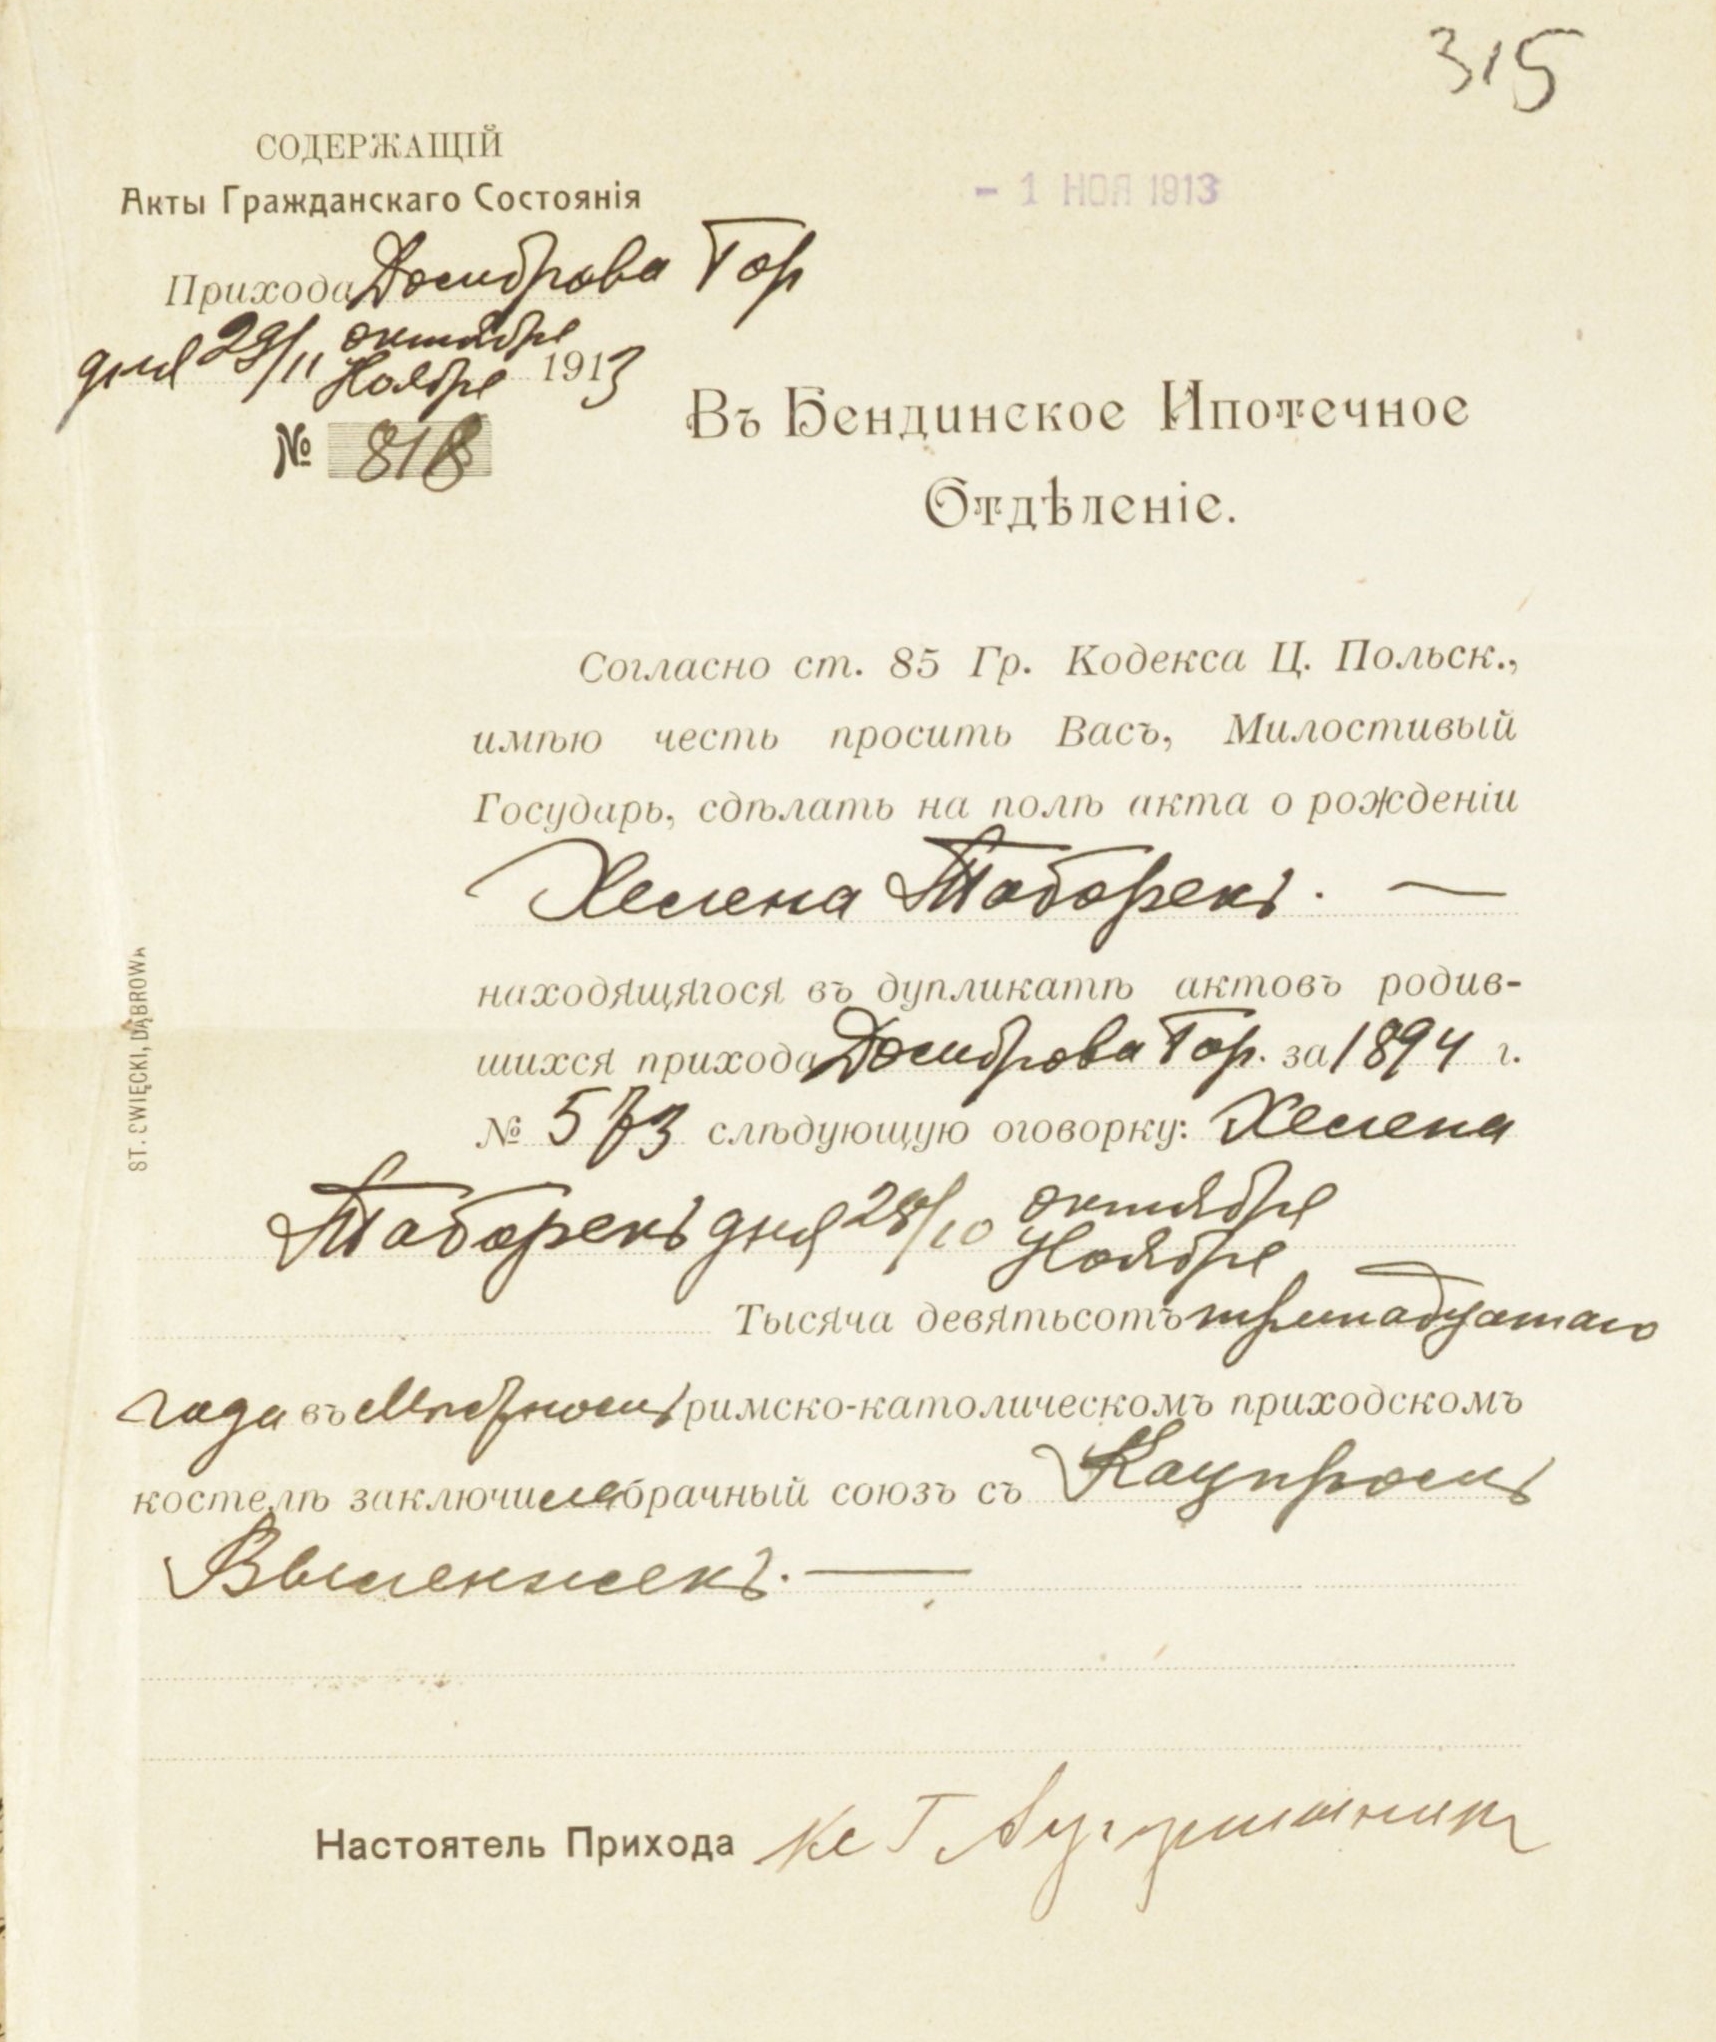 315
СОДЕРЖАЩІЙ
Акты Гражданскаго Состоянія
- 1 НОЯ 1913
Прихода Домброва Гор
дня 29/11 октября
Ноября 1913
№ 818
Въ Бендинское Ипотечное
Отдѣленіе.
Согласно ст. 85 Гр. Кодекса Ц. Польск.,
имѣю честь просить Васъ, Милостивый
Государь, сдѣлать на полѣ акта о рожденіи
Хелена Таборекъ. —
находящягося въ дупликатѣ актовъ родив-
шихся прихода Домброва Гор. за 1894 г.
№ 573 слѣдующую оговорку: Хелена
Таборекъ дня 28/10 октября
Ноября
Тысяча девятьсотъ тринадцатаго
года въ мѣстномъ римско-католическомъ приходскомъ
костелѣ заключила брачный союзъ съ Кацпромъ
. —
Настоятель Прихода Кс Г
ST. ŚWIĘCKI, DĄBROWA